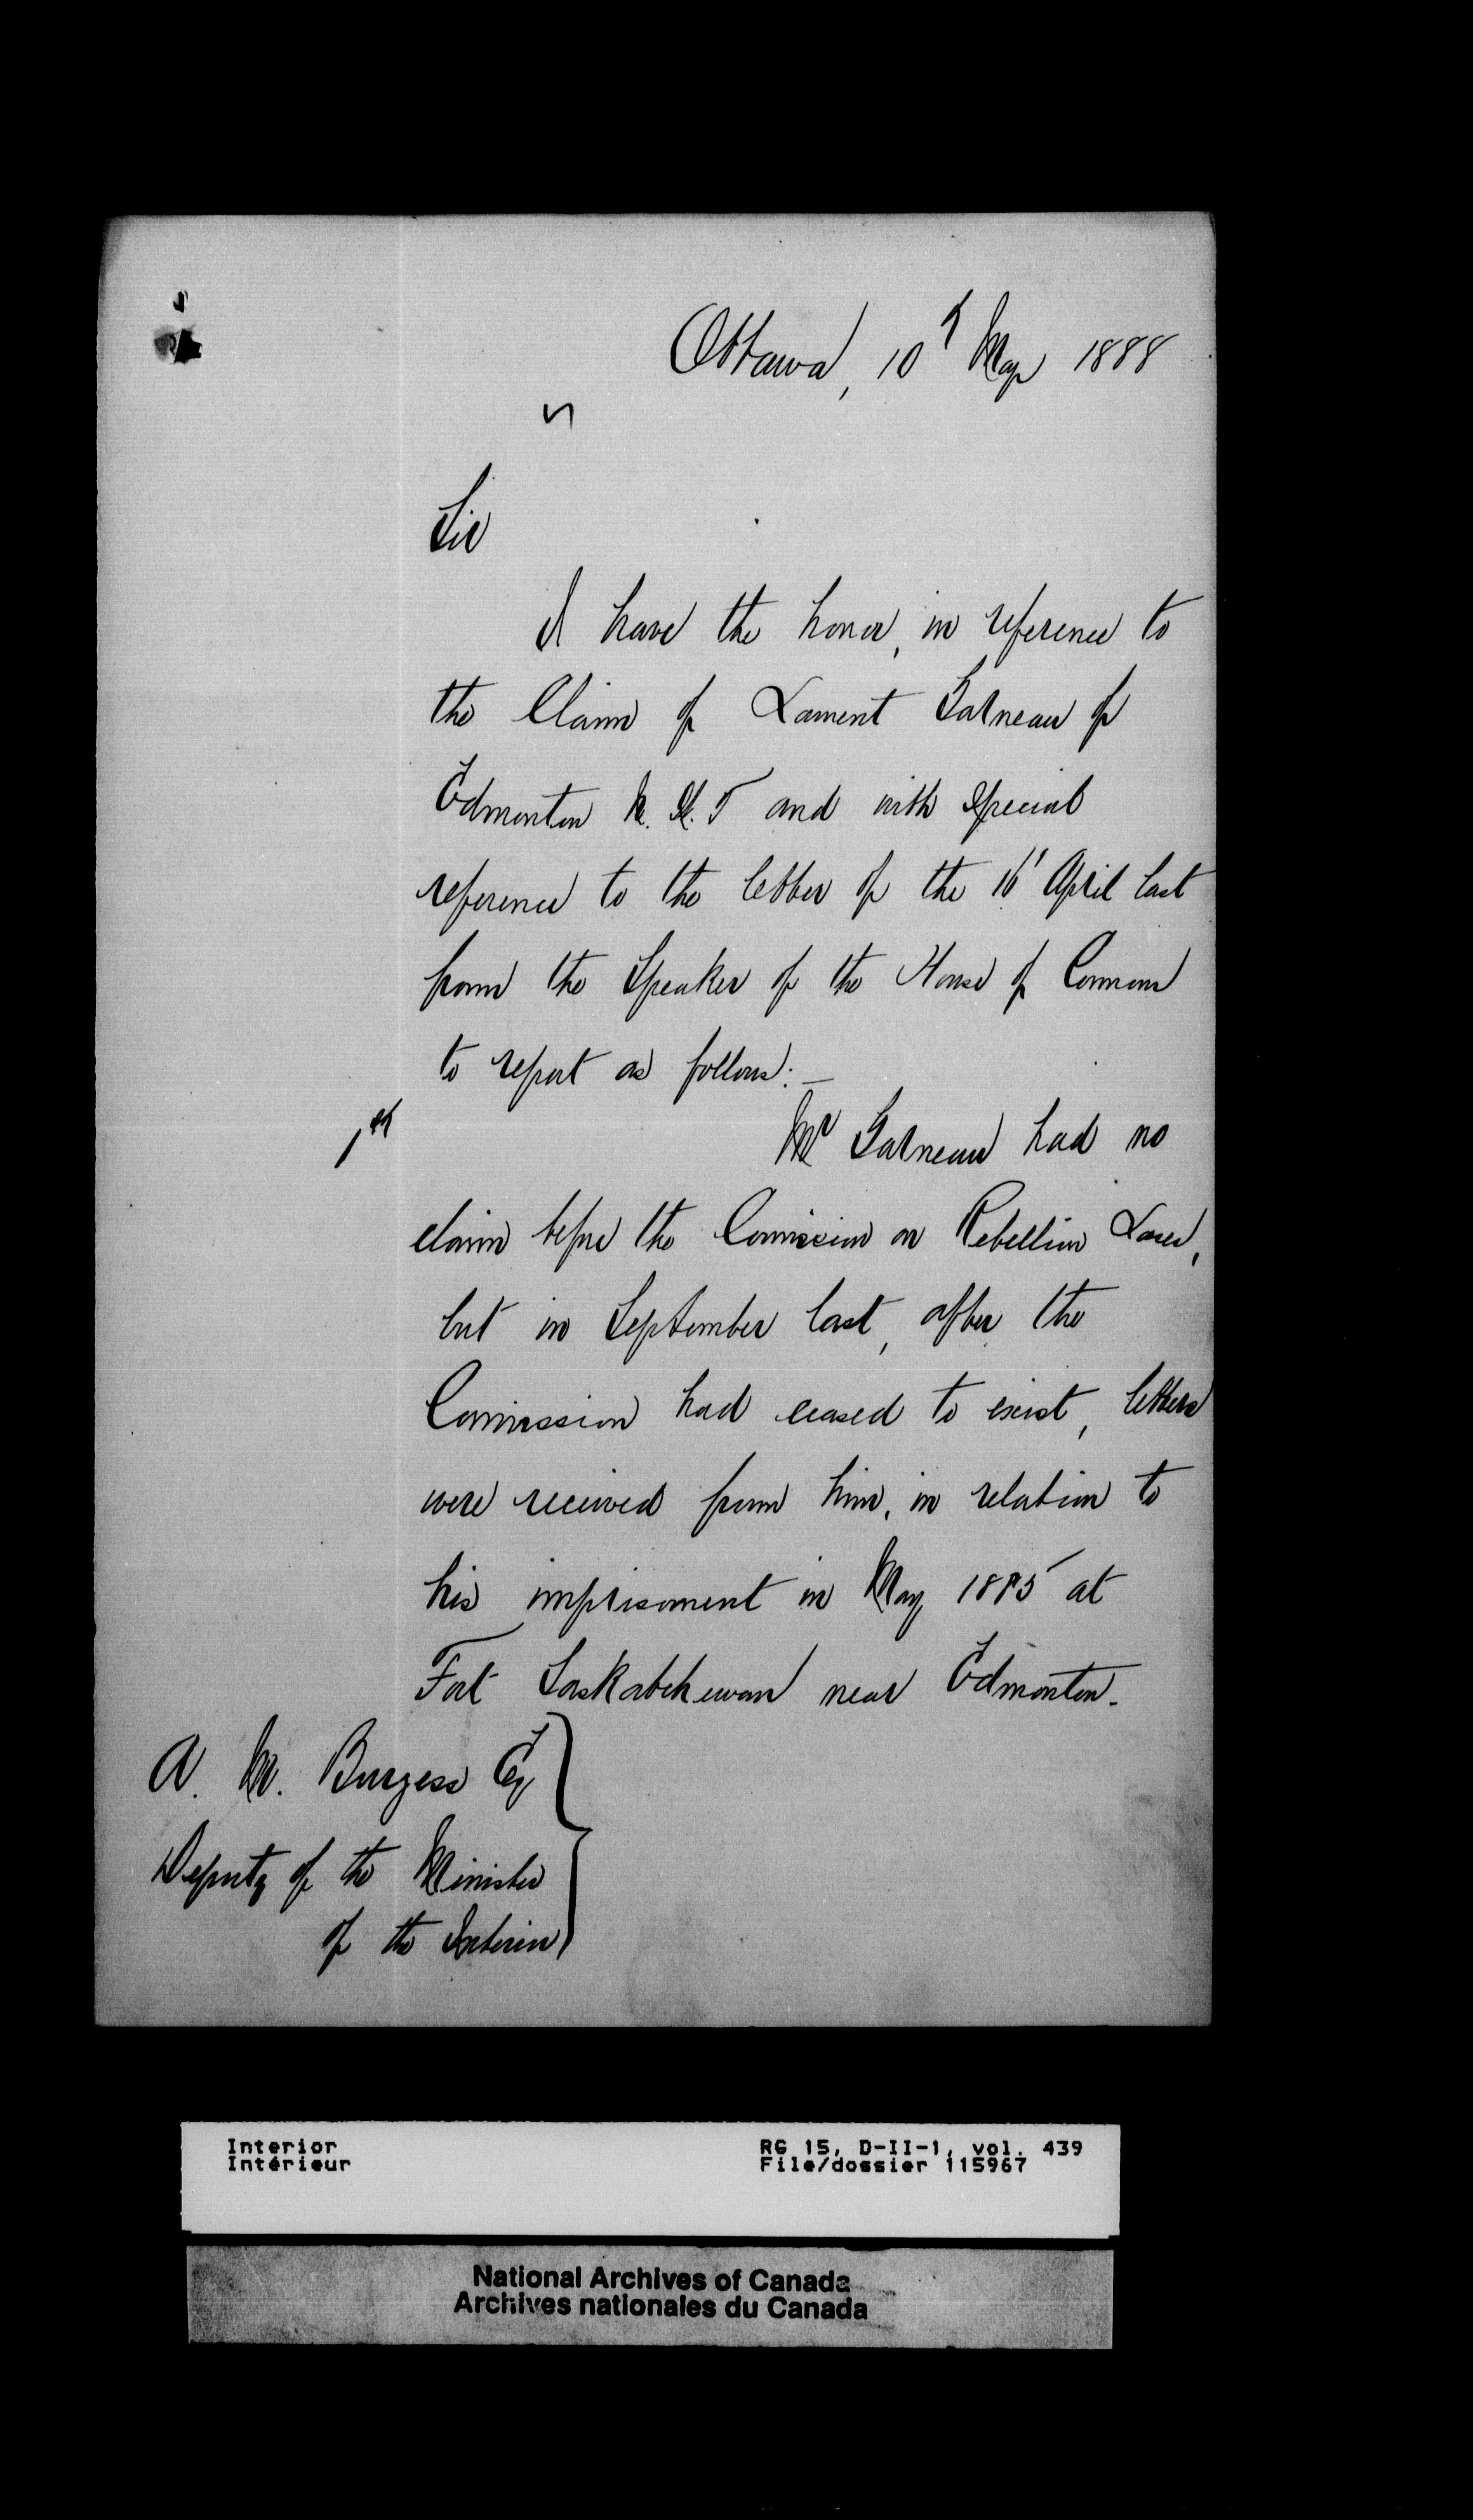 Ottawa, 10th May 1888
Sir
I have the honor, in reference to
the Claim of Laurent Garneau of
Edmonton N. W. T and with special
reference to the letter of the 16' April last
from the Speaker of the House of Commons
to report as follows:—
1st
Mr Garneau had no
claim before the Commission on Rebellion Losses,
but in September last, after the
Commission had ceased to exist, letters
were received from him, in relation to
his imprisonment in May 1885 at
Fort Saskatchewan near Edmonton.
A. M. Burgess Esq
Deputy of the Minister
of the Interior
Interior
Intérieur
RG 15, D-II-1, vol. 439
File/dossier 115967
National Archives of Canada
Archives nationales du Canada